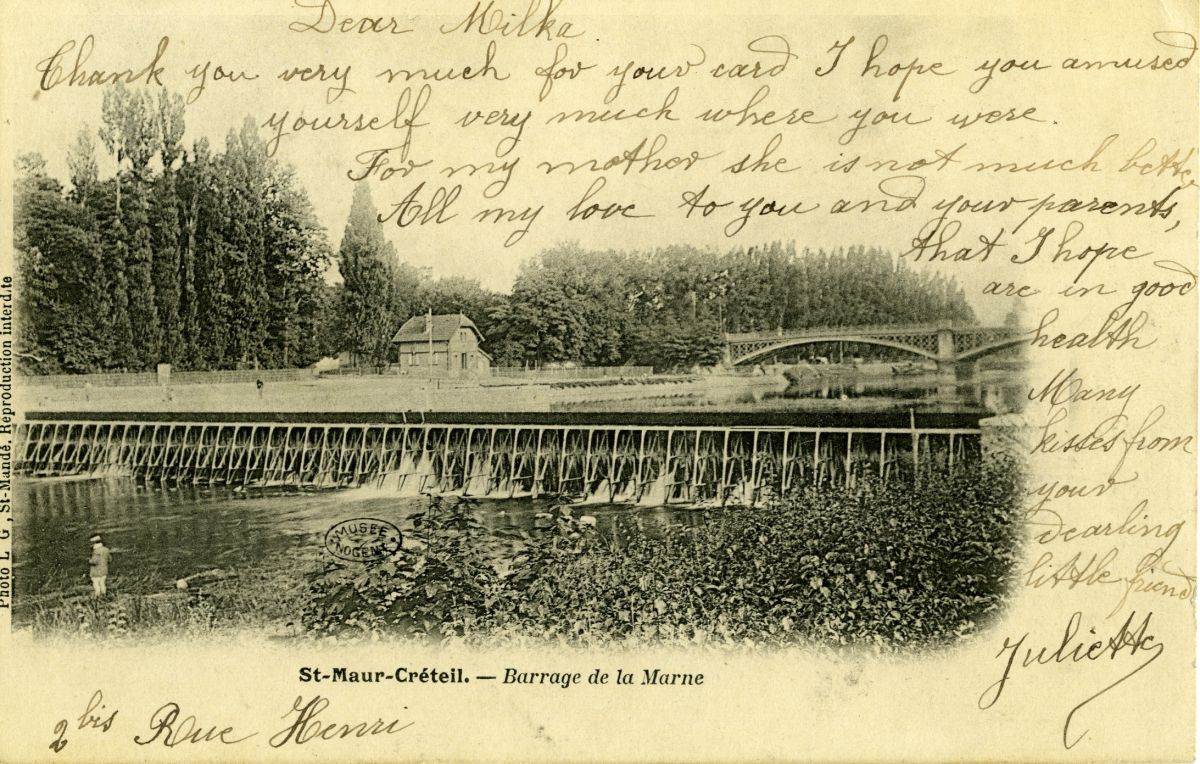 Dear Milka
Thank you very much for your card I hope you amused
yourself very much where you were.
For my mother she is not much better,
All my love to you and your parents,
that I hope
are in good
health
Many
kisses from
your
dearling
little friend
Juliette
Photo L G, St-Mandé. Reproduction interd.te
MUSÉE
NOGENT
St-Maur-Créteil. — Barrage de la Marne
2 bis Rue Henri